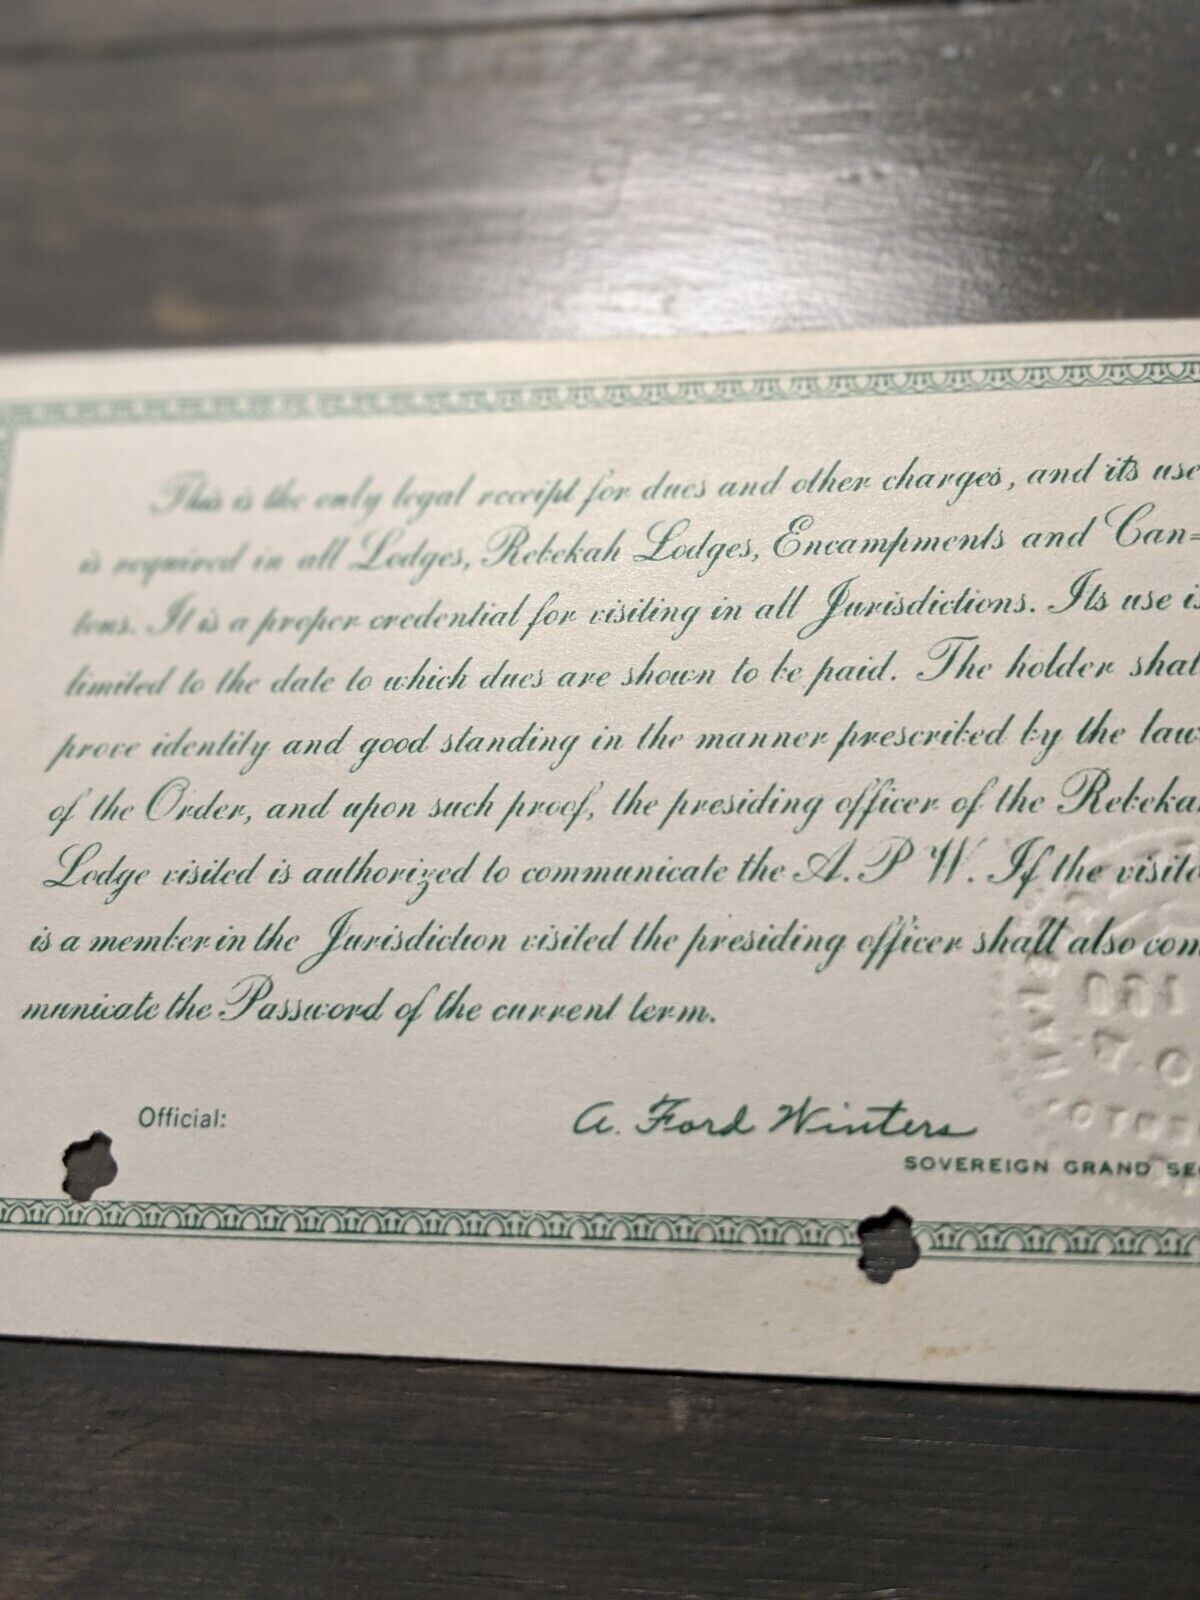 This is the only legal receipt for dues and other charges, and its use
is required in all Lodges, Rebekah Lodges, Encampments and Can=
tons. It is a proper credential for visiting in all Jurisdictions. Its use is
limited to the date to which dues are shown to be paid. The holder shal
prove identity and good standing in the manner prescribed by the law
of the Order, and upon such proof, the presiding officer of the Rebeka
Lodge visited is authorized to communicate the A. P W. If the visito
is a member in the Jurisdiction visited the presiding officer shall also com
municate the Password of the current term.
Official:
A. Ford Winters
SOVEREIGN GRAND SE